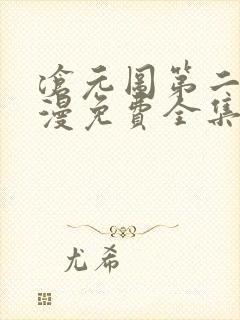 滄元圖第二
漫免費全集
尤希